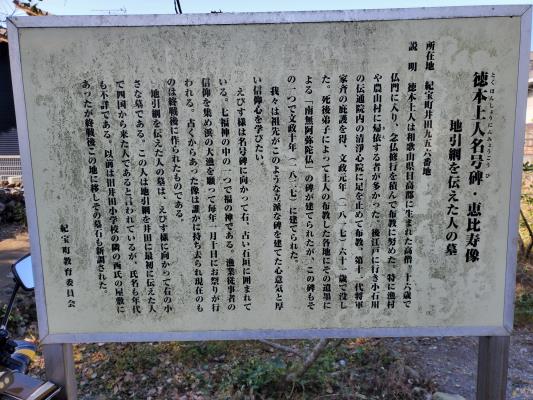 とくほんしょうにんみょうごうひ
徳本上人名号碑・恵比寿像
地引網を伝えた人の墓
所在地　紀宝町井田九五六番地
説　明　徳本上人は和歌山県日高郡に生まれた高僧、二十六歳で
仏門に入り、念仏修行を積んで布教に努めた。特に漁村
や農山村に帰依する者が多かった。後江戸に行き小石川
の伝通院内の清浄心院に足を止めて布教、第十一代将軍
家斉の庇護を得、文政元年（一八一七）六十一歳で没し
た。死後弟子によって上人の布教した各地にその遺墨に
よる「南無阿弥陀仏」の碑が建てられたが、この碑もそ
の一つで文政十年（一八二七）に建てられた。
我々は祖先がこのような立派な碑を建てた心意気と厚
い信仰心を学びたい。
えびす様は名号碑に向かって右、古い石垣に囲まれて
いる。七福神の中の一つで福の神である。漁業従事者の
信仰を集め浜の大漁を願って毎年一月十日にお祭りが行
われる。古くからあった像は誰かに持ち去られ現在のも
のは終戦後に作られたものである。
地引網を伝えた人の墓は、えびす様に向かって右の小
さな墓である。この人は地引網を井田に最初に伝えた人
で四国から来た人であると言われているが、氏名も年代
も不詳である。以前は旧井田小学校の隣の西氏の屋敷に
あったが終戦後この地に移しその墓石も新調された。
紀宝町教育委員会